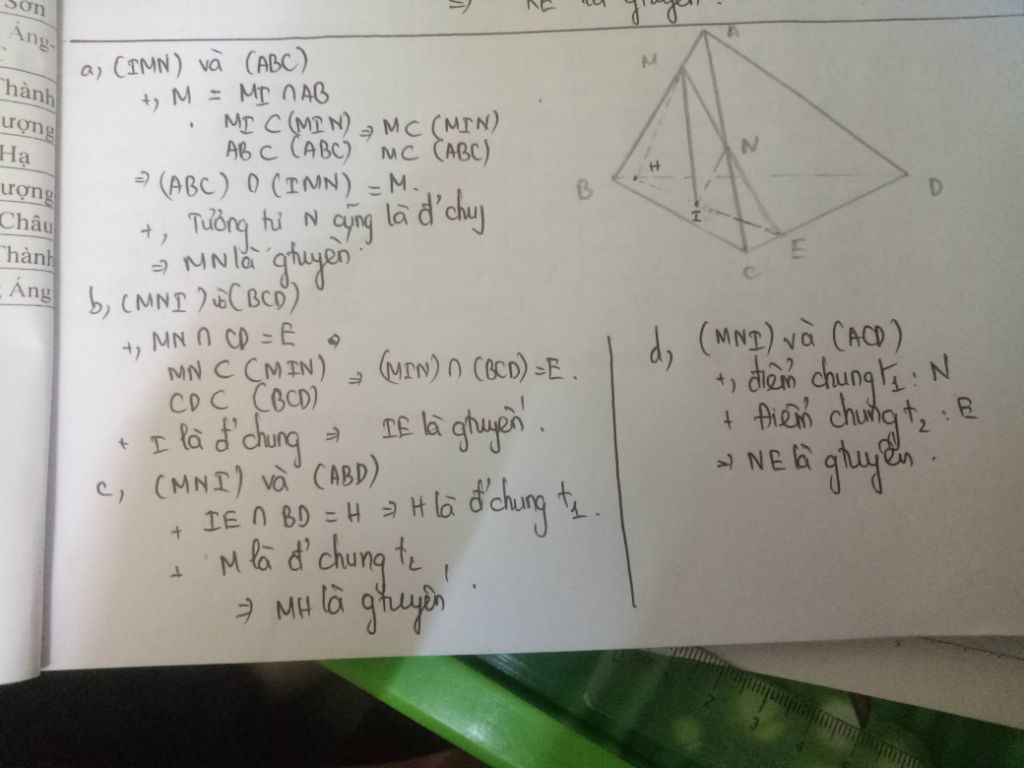 Sơn
Áng-
Thành
ượng
Hạ
ượng
Châu
Thành
Áng
⇒ KE là gtuyến.
a, (IMN) và (ABC)
+, M = MI ∩ AB
MI ⊂ (MIN) ⇒ M ⊂ (MIN)
AB ⊂ (ABC) M ⊂ (ABC)
⇒ (ABC) ∩ (IMN) = M.
+, Tương tự N cũng là đ' chug
⇒ MN là gtuyến
b, (MNI) và (BCD)
+, MN ∩ CD = E
MN ⊂ (MIN) ⇒ (MIN) ∩ (BCD) = E.
CD ⊂ (BCD)
+ I là đ' chung ⇒ IE là gtuyến.
c, (MNI) và (ABD)
+ IE ∩ BD = H ⇒ H là đ' chung t1.
+ M là đ' chung t2
⇒ MH là gtuyến
A
M
N
H
B
D
I
E
C
d, (MNI) và (ACD)
+, điểm chung t1 : N
+ điểm chung t2 : E
⇒ NE là gtuyến.
2
3
4
5